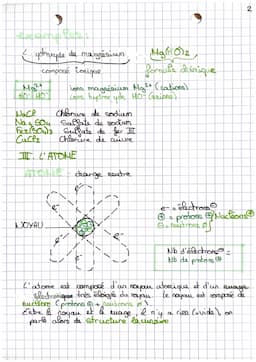 2
exemples :
hydroxyde de magnésium
Mg(HO)₂
composé ionique
formule chimique
Mg²⁺
ions magnésium Mg²⁺ (cations)
HO⁻ HO⁻
ions hydroxyde HO⁻ (anions)
NaCl Chlorure de sodium
Na₂SO₄ Sulfate de sodium
Fe₂(SO₄)₃ Sulfate de fer III
CuCl₂ Chlorure de cuivre
III L'ATOME
ATOME : charge neutre
e⁻
e⁻
e⁻
e⁻
NOYAU
e⁻ = électrons ⊖
⊕ = protons ⊕
= neutrons
Nucléons ⊕
Nb d'électrons ⊖ =
Nb de protons ⊕
L'atome est composé d'un noyau atomique et d'un nuage
électronique très éloigné du noyau. Le noyau est composé de
nucléons (protons ⊕ + neutrons).
Entre le noyau et le nuage, il n'y a rien (vide), on
parle alors de structure lacunaire